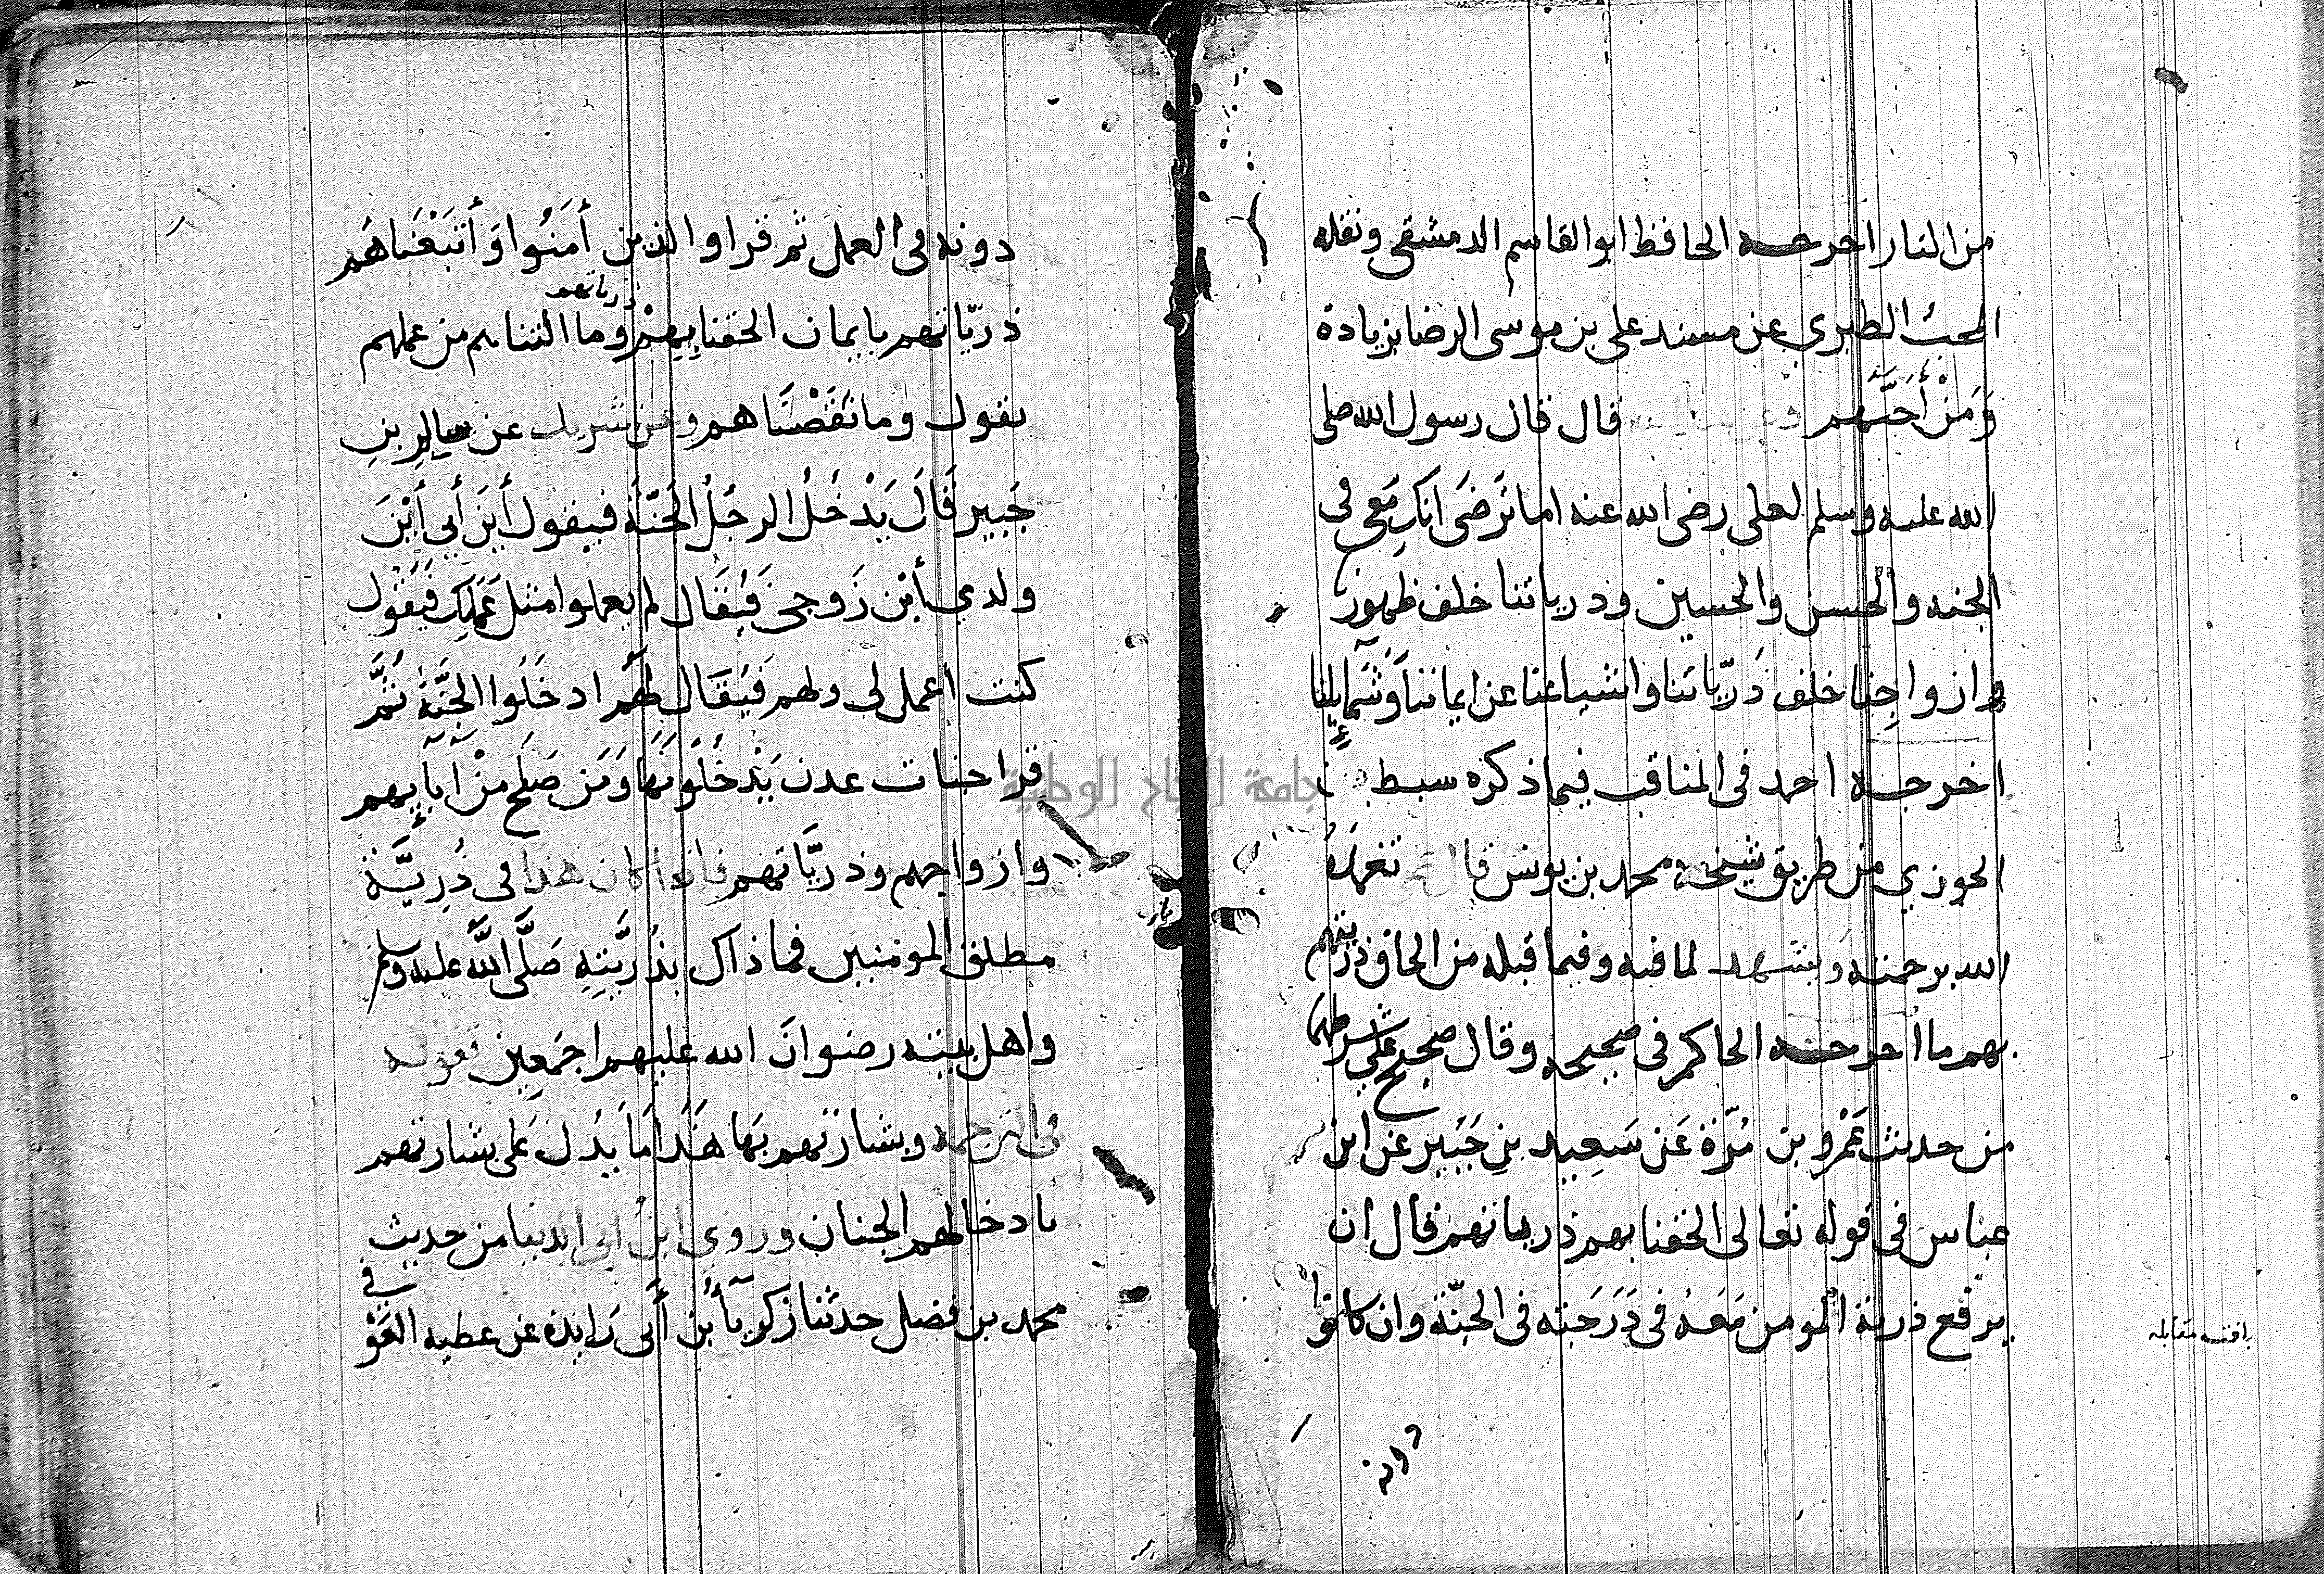 من النار اخرجه الحافظ ابو القاسم الدمشقى ونقله
المحب الطبري عن مسند على بن موسى الرضا بزيادة
وَمَنْ أَحَبَّهم قال قال رسول الله صلى
الله عليه وسلم لعلى رضى الله عنه اما تَرضَى انَكَ مَعِى فى
الجنه والحسن والحسين وذرياتنا خلف ظهورنا
وازواجِنا خلف ذَرّيّاتنا واشياعنا عن ايماننا وَشَمَايلنا
اخرجه احمد فى المناقب فيما ذكره سبط بن
الجوزي من طريق شيخه محمد بن يونس قال تغمدهُ
الله برحمته ويشهد لما فيه وفيما قبله من الحاق ذريتهم
بهم ما اخرجه الحاكم فى صحيحه وقال صحيح على شرطهما
من حديث عَمْرو بن مُرّة عَن سَعِيد بن جَبَير عن ابن
عباس فى قوله تعالى الحقنا بهم ذرياتهم قال ان
يرفع ذرية المومن مَعَهُ فى دَرَجَته فى الجنّة وان كانوا
دونه
بلغت مقابله
دونه فى العمل ثم قرا والذين أمَنُوا وَأَتبَعْنَاهُم
ذريّاتهم بايمان الحقنا بِهِمْ ذرياتهم وما التناهم من عملهم
يقول وما نَقَصْنَاهم وعن شريك عن سالِم بنِ
جَبِير قَالَ يَدْخُلُ الرجُلُ الجَنَّةَ فيقول أَينَ أَبِي أَيْنَ
ولدي أَيْن زَوجى فَيُقَال لم يعملوا مثل عَمَلِك فَيَقُول
كنت اعمل لى ولهم فَيُقَال لَهُم ادخَلُوا الجَنَّةَ ثُمَّ
قرا جنات عدن يَدْخُلُونَهَا وَمَن صَلَح مِنْ ابآيهم
وازواجهم وذريَّاتهم فاذا كان هذا فى ذُرِيَّة
مطلق المومنين فما ذاك بذُريَّتِهِ صَلَّى اللَّه عليه وسلم
واهل بيته رضوانَ الله عليهم اجمَعِين قوله
فى الترجمه وبشارتهم بهَا هَذَا مَا يَدُل عَلى بشارتهم
بادخالهم الجنان وروى ابن ابى الدنيا من حديث
محمد بن فضيل حدثنا زكريآ بُن أَبى زايدة عن عطيه العَوْفي
جامعة النجاح الوطنية